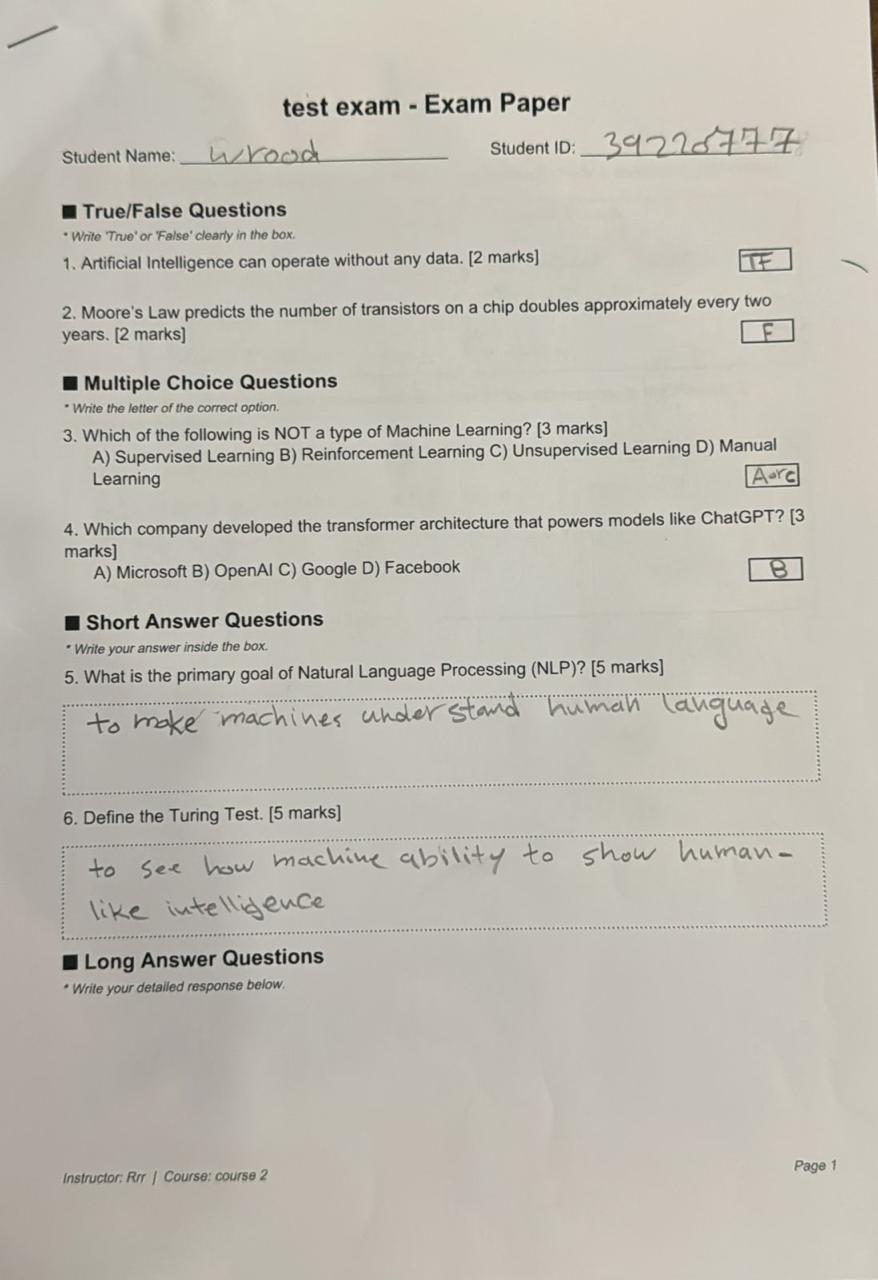 test exam - Exam Paper
Student Name: Wrood Student ID: 39220777
■ True/False Questions
* Write 'True' or 'False' clearly in the box.
1. Artificial Intelligence can operate without any data. [2 marks]
TF
2. Moore's Law predicts the number of transistors on a chip doubles approximately every two
years. [2 marks]
F
■ Multiple Choice Questions
* Write the letter of the correct option.
3. Which of the following is NOT a type of Machine Learning? [3 marks]
A) Supervised Learning B) Reinforcement Learning C) Unsupervised Learning D) Manual
Learning
A or C
4. Which company developed the transformer architecture that powers models like ChatGPT? [3
marks]
A) Microsoft B) OpenAI C) Google D) Facebook
B
■ Short Answer Questions
* Write your answer inside the box.
5. What is the primary goal of Natural Language Processing (NLP)? [5 marks]
to make machines understand human language
6. Define the Turing Test. [5 marks]
to see how machine ability to show human-
like intelligence
■ Long Answer Questions
* Write your detailed response below.
Instructor: Rrr | Course: course 2
Page 1